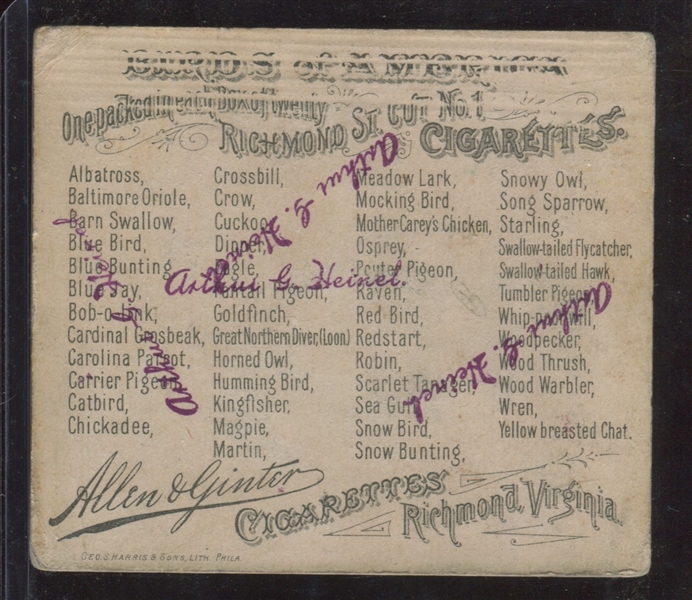 BIRDS of AMERICA
One packed in each Box of twenty
RICHMOND St. CUT No. 1
CIGARETTES.
Albatross,
Baltimore Oriole,
Barn Swallow,
Blue Bird,
Blue Bunting,
Blue Jay,
Bob-o-link,
Cardinal Grosbeak,
Carolina Parrot,
Carrier Pigeon,
Catbird,
Chickadee,
Crossbill,
Crow,
Cuckoo,
Dipper,
Eagle,
Fantail Pigeon,
Goldfinch,
Great Northern Diver, (Loon)
Horned Owl,
Humming Bird,
Kingfisher,
Magpie,
Martin,
Meadow Lark,
Mocking Bird,
Mother Carey's Chicken,
Osprey,
Pouter Pigeon,
Raven,
Red Bird,
Redstart,
Robin,
Scarlet Tanager,
Sea Gull,
Snow Bird,
Snow Bunting,
Snowy Owl,
Song Sparrow,
Starling,
Swallow-tailed Flycatcher,
Swallow-tailed Hawk,
Tumbler Pigeon,
Whip-poor-will,
Woodpecker,
Wood Thrush,
Wood Warbler,
Wren,
Yellow breasted Chat.
Arthur G. Heinel
Arthur G. Heinel.
Arthur G. Heinel
Arthur G. Heinel
Allen & Ginter
CIGARETTES
Richmond, Virginia.
GEO. S. HARRIS & SONS, LITH. PHILA.